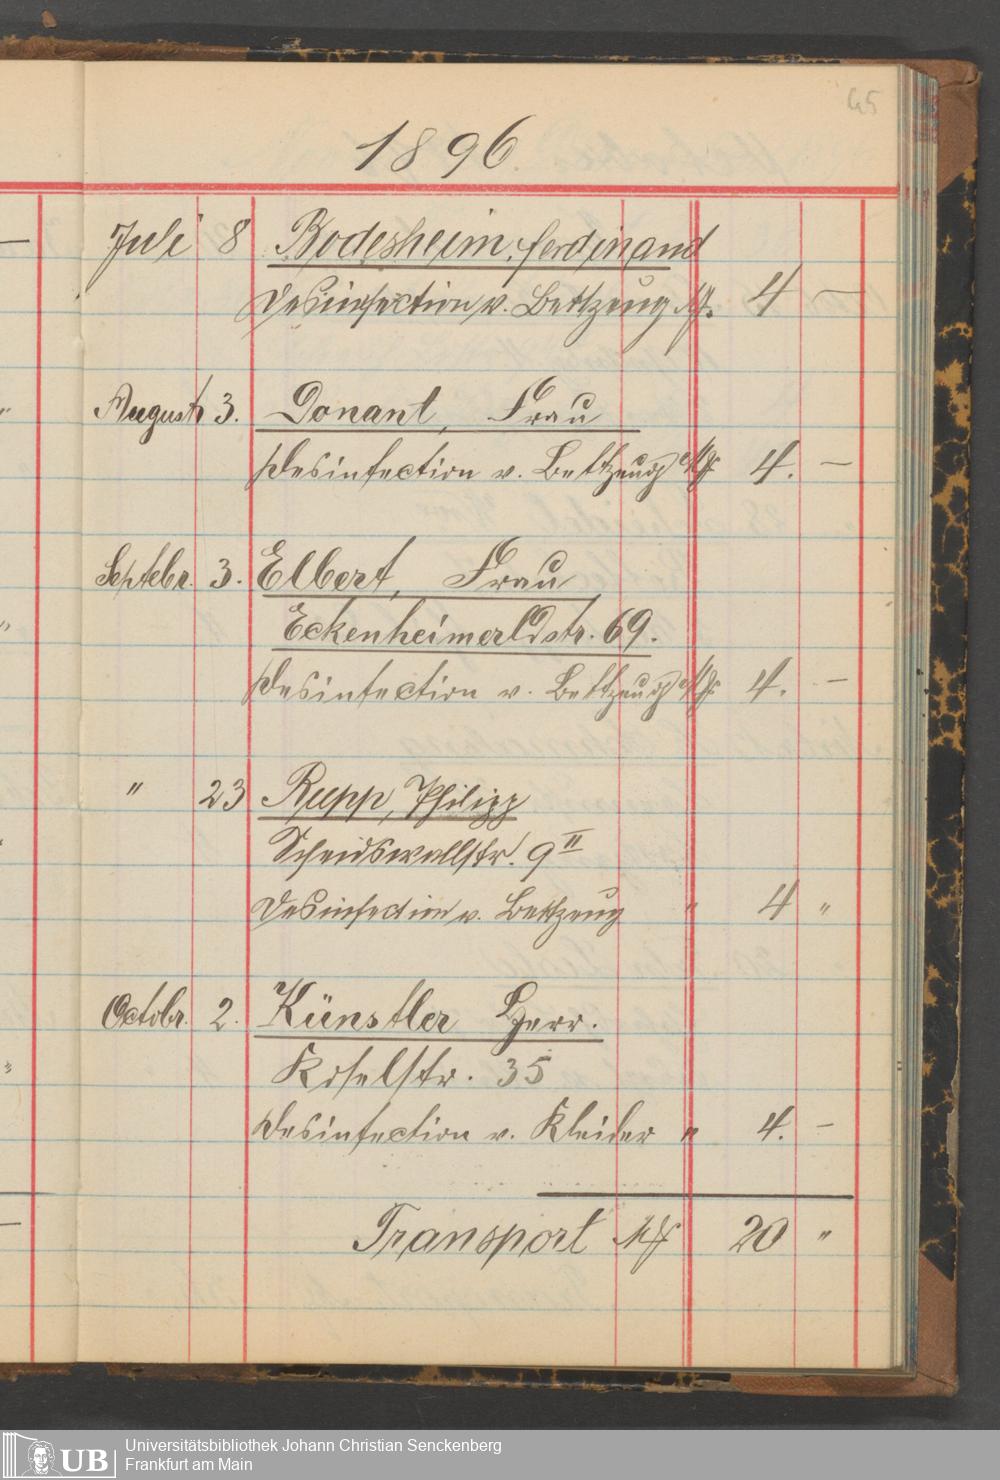 45
1896
Juli 8 Bodesheim, Ferdinand
Desinfection v. Bettzeug M. 4 —
August 3. Donant, Frau
Desinfection v. Bettzeug M 4. —
Septebr. 3. Elbert, Frau
Eckenheimerldstr. 69.
Desinfection v. Bettzeug M 4. —
" 23 Rupp, Philipp
Scheidswallstr. 9 II
Desinfection v. Bettzeug " 4 "
Octobr. 2. Künstler Herr.
Koselstr. 35
Desinfection v. Kleider " 4. —
Transport M 20 "
UB
Universitätsbibliothek Johann Christian Senckenberg
Frankfurt am Main